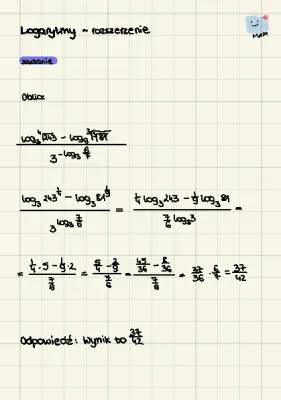 Logarytmy ~ rozszerzenie
Mem
zadanie
Oblicz
log₃ ⁴√243 − log₉ ⁹√81
3^(−log₃ 6/7)
(log₃ 243^(1/4) − log₉ 81^(1/9)) / 3^(log₃ 7/6) = (1/4 log₃ 243 − 1/9 log₉ 81) / (7/6 log₃ 3) =
= (1/4 · 5 − 1/9 · 2) / (7/6) = (5/4 − 2/9) / (7/6) = (45/36 − 8/36) / (7/6) = 37/36 · 6/7 = 37/42
Odpowiedź: Wynik to 37/42